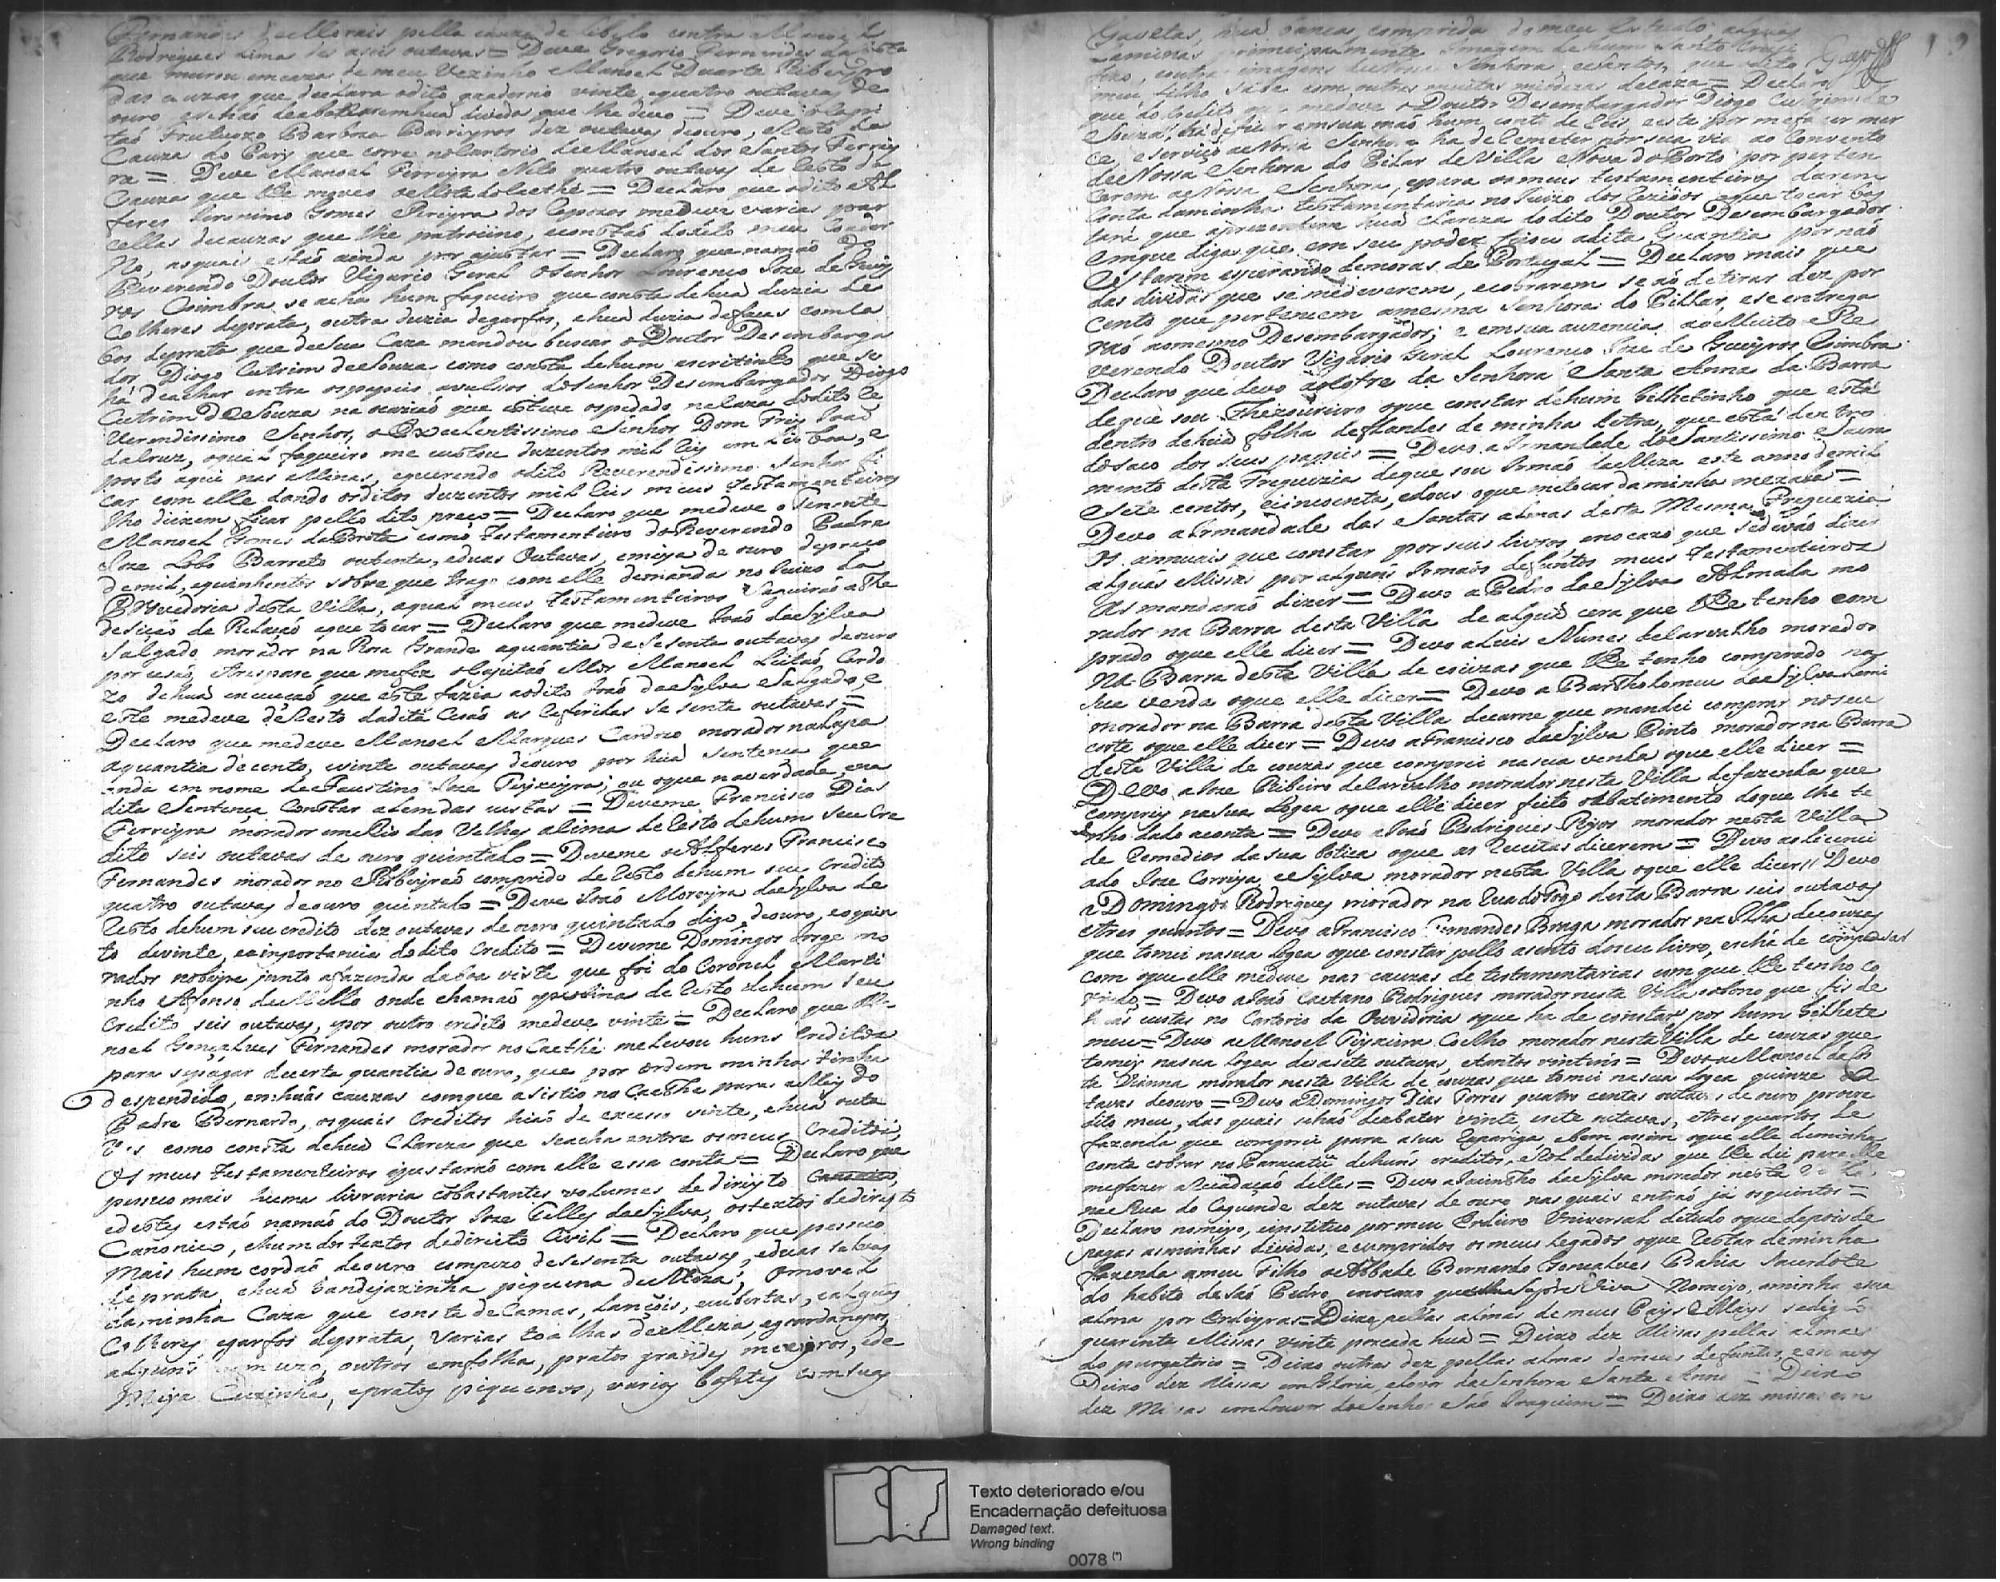 Fernandes de Morais pella cauza de libelo contra Manoel
Rodrigues Lima des aseis outavas = Deve Gregorio Fernandes da Costa
que morou em cazas de meu Vezinho Manoel Duarte Ribeyro
das cauzas que declara o dito quaderno vinte, e quatro outavas de
ouro se hao de abater em hua divida que lhe devo = Deve o Capi
taó Frutuozo Barboza Barreyros dez outavas de ouro, resto da
Cauza do Pary que corre no Cartorio de Manoel dos Santos Ferrey
ra = Deve Manoel Ferreyra Neto quatro outavas de resto da
Cauza que lhe
feres Jeronimo Gomes Pereyra dos Raposos me deve varias par
cellas de cauzas que lhe patrocino, e constaó do dito meu Cader
no, as quais estaó ainda por ajustar = Declaro que na maó do
Reverendo Doutor Vigario Geral o Senhor Lourenço Joze de Quey
ros Coimbra se acha hum faqueiro que consta de hua duzia de
Colheres de prata, outra duzia de garfos, e hua duzia de facas com ca
bos de prata que de sua Caza mandou buscar o Doutor Desembarga
dor Diogo Cutrim de Souza como consta de hum escritinho que se
há de achar entre os papeis avulsos do Senhor Desembargador Diogo
Cutrim de Souza na occaziaó que esteve ospedado na Caza do dito Re
verendissimo Senhor, o Excelentissimo Senhor Dom Frey Joaó
da Cruz, o qual faqueiro me custou duzentos mil reis em Lisboa, e
posto aqui nas Minas, e querendo o dito Reverendissimo Senhor fi
car com elle dando os ditos duzentos mil reis meus Testamenteiros
lho deixem ficar pello dito preço = Declaro que me deve o Tenente
Manoel Gomes da Mota como Testamenteiro do Reverendo Padre
Joze Lobo Barreto outenta, e duas Outavas, e meya de ouro de preço
de mil, e quinhentos sobre que trago com elle demanda no Juizo da
Provedoria desta Villa, a qual meus testamenteiros seguiraó athe
desiçaó da Relaçaó a que tocar = Declaro que me deve Joaó da Sylva
Salgado morador na Rosa Grande a quantia de sesenta outavas de ouro
por cesaó, e trespase que me fez o Capitaó Mor Manoel Leitaó Cardo
zo de hua execuçaó que este fazia ao dito Joaó da Sylva Salgado, e
este me deve de resto da dita Cesaó as referidas sesenta outavas =
Declaro que me deve Manoel Marques Cardozo morador na Lapa
a quantia de cento, e vinte outavas de ouro por hua Sentença que
anda em nome de Faustino Joze Teyxeyra, ou o que na verdade na
dita Sentença Constar alem das custas = Deveme Francisco Dias
Ferreyra morador em o Rio das Velhas asima de resto de hum seu Cre
dito seis outavas de ouro quintado = Deveme o Alferes Francisco
Fernandes morador no Ribeyraó comprido de resto de hum seu Credito
quatro outavas de ouro quintado = Deve Joaó Moreyra da Sylva de
resto de hum seu credito dez outavas de ouro quintado digo de ouro, e o quin
to de vinte, e a inportancia do dito Credito = Deveme Domingos Jorge mo
rador no Cuipe junto a fazenda da boa vista que foi do Coronel Marti
nho Afonso de Mello onde chamaó de resto de hum seu
Credito seis outavas, e por outro credito me deve vinte = Declaro que Ma
noel Gonçalves Fernandes morador no Caethé me levou huns Creditos
para se pagar de certa quantia de ouro, que por ordem minha tinha
despendido, em húas cauzas com que asistio no Caethe para a May do
Padre Bernardo, os quais Creditos hiaó de excesso vinte, e hua outa
vas como consta de hua Clareza que se acha entre os meus Creditos,
Os meus testamenteiros ajustaraó com elle essa conta = Declaro que
possuo mais huma livraria com bastantes volumes de direyto Canonico,
e destes estaó na maó do Doutor Joze Telles da Sylva, os textos de direyto
Canonico, e hum dos textos de direito Civil = Declaro que possuo
mais hum cordaó de ouro com pezo de sesenta outavas, e duas salvas
de prata, e hua bandejazinha piquena de Meza, O movel
da minha Caza que consta de Camas, Lançóis, cubertas, e algúas
Colheres, e garfos de prata, varias toalhas de Meza, e goardanapos
alguns em uzo, outros em folha, pratos grandes meyaos, e de
Meya Cuzinha, e pratos piquenos, varios bofetes com suas
Gavetas, hua banca comprida do meu Estudo, alguas
Laminas principalmente a Imagem de hum Santo Cruci
fixo, e outras imagens de Nossa Senhora, e Santos, que o dito
meu filho sabe com outras muitas miudezas de caza = Declaro
que do Credito que me deve o Doutor Desembargador Diogo Cutrim de
Souza, há de ficar em sua maó hum conto de reis, e este por me fazer mer
ce, e serviço a Nossa Senhora ha de remeter por sua via ao Convento
de Nossa Senhora do Pilar de Villa Nova do Porto por perten
cerem a Nossa Senhora, e para os meus testamenteiros darem
conta da minha testamentaria no Juizo dos Rezidos a que tocar bas
tará que aprezentem hua clareza do dito Doutor Desembargador
em que diga que em seu poder ficou a dita Quantia por naó
estarem esperando demoras de Portugal = Declaro mais que
das dividas que se me deverem, e cobrarem se aó de tirar dez por
cento que pertencem a mesma Senhora do Pillar, e se entrega
raó ao mesmo Desembargador; e em sua auzencia ao Muito Re
verendo Doutor Vigario Geral Lourenço Joze de Queyros Coimbra
Declaro que devo ao Cofre da Senhora Santa Anna da Barra
de que sou Thezoureiro o que constar de hum bilhetinho que está
dentro de hua folha de flandes de minha letra, que está dentro
do saco dos seus papeis = Devo a Irmandade do Santissimo Sacra
mento desta Freguezia de que sou Irmaó da Meza este anno de mil
e sete centos, e sincoenta, e dous o que me tocar da minha mezada =
Devo a Irmandade das Santas almas desta Mesma Freguezia
os annuais que constar por seus livros, e no cazo que se devaó dizer
alguas Missas por alguns Irmaós defuntos meus Testamenteiros
as mandaraó dizer = Devo a Pedro da Sylva Almada mo
rador na Barra desta Villa de algua cera que lhe tenho com
prado o que elle dicer = Devo a Luis Nunes de Carvalho morador
na Barra desta Villa de couzas que lhe tenho comprado na
sua venda o que elle dicer = Devo a Bartholomeu da Sylva
morador na Barra desta Villa de carne que mandei comprar no seu
corte o que elle dicer = Devo a Francisco da Sylva Pinto morador na Barra
desta Villa de couzas que comprei na sua venda o que elle dicer =
Devo a Joze Ribeiro de Carvalho morador nesta Villa de fazenda que
comprei na sua Logea o que elle dicer feito o abatimento do que lhe te
nho dado a conta = Devo a Joaó Rodrigues morador nesta Villa
de remedios da sua botica o que as Receitas dicerem = Devo ao Licenci
ado Joze Correya e Sylva morador nesta Villa o que elle dicer // Devo
a Domingos Rodrigues morador na Rua do Fogo desta Barra seis outavas
e tres quartos = Devo a Francisco Fernandes Braga morador na Ilha de couzas
que tomei na sua Logea o que constar pello asento do seu livro, e se há de compensar
com o que elle me deve nas cauzas de testamentarias em que lhe tenho
= Devo a Joaó Caetano Rodrigues morador nesta Villa o abono que fis de
huas custas no Cartorio da Ouvidoria o que ha de constar por hum bilhete
meu = Devo a Manoel Teyxeira Coelho morador nesta Villa de couzas que
tomey na sua logea desasete outavas, e tantos vinteins = Devo a Manoel da Cos
ta Vianna morador nesta Villa de couzas que tomei na sua Logea quinze ou
tavas de ouro = Devo a Domingos Dias Torres quatro centas outavas de ouro por cre
dito meu, das quais se haó de abater vinte, e sete outavas, e tres quartos de
fazenda que comprei para a sua rapariga, e bem assim o que elle de minha
conta cobrar no Paracatú de huns creditos, e Rol de dividas que lhe dei para elle
me fazer a Recadaçaó delles = Devo a Jacintho da Sylva morador nesta Villa
na Rua do Caquende dez outavas de ouro nas quais entraó já os quintos =
Declaro nomeyo, e instituo por meu Erdeiro Universal de tudo o que depois de
pagas as minhas dividas, e cumpridos os meus legados o que restar de minha
fazenda a meu Filho o Abbade Bernardo Gonçalves Bahia Sacerdote
do habito de Saó Pedro, e no cazo que elle seja Viva Nomeyo, a minha
alma por Erdeyra = Deixo pellas almas de meus Pays e Mays se digaó
quarenta Missas vinte por cada hua = Deixo dez Missas pellas almas
do purgatorio = Deixo outras dez pellas almas de meus defuntos, e escravos
Deixo dez Missas em Gloria, e louvor da Senhora Santa Anna = Deixo
dez Missas em louvor do Senhor Saó Joaquim = Deixo dez missas em
Texto deteriorado e/ou
Encadernação defeituosa
Damaged text.
Wrong binding
0078 (*)